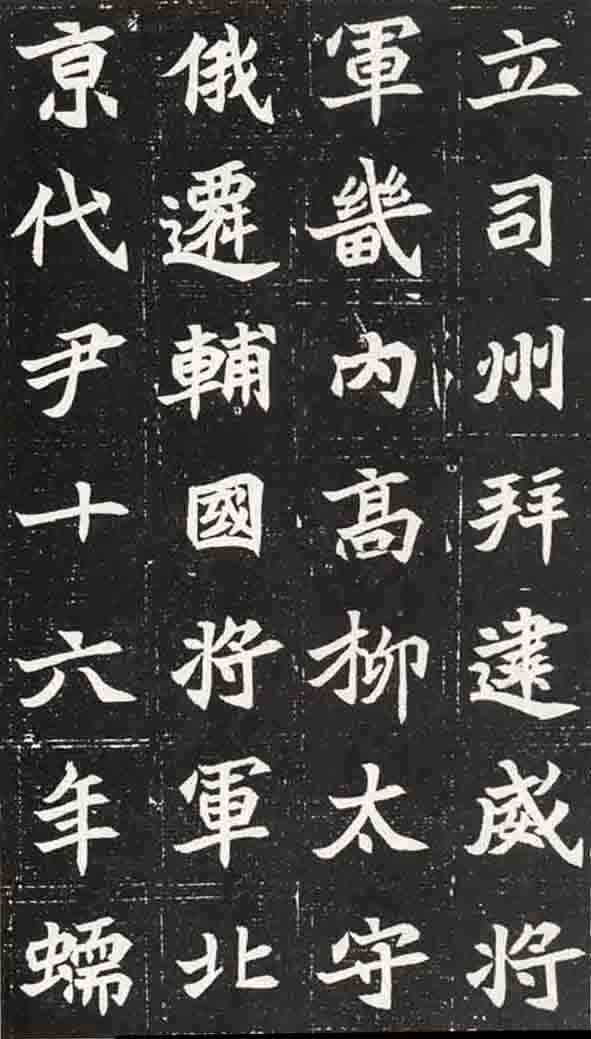 立司州拜建威將
軍畿内高柳太守
俄遷輔國將軍北
京代尹十六年蠕